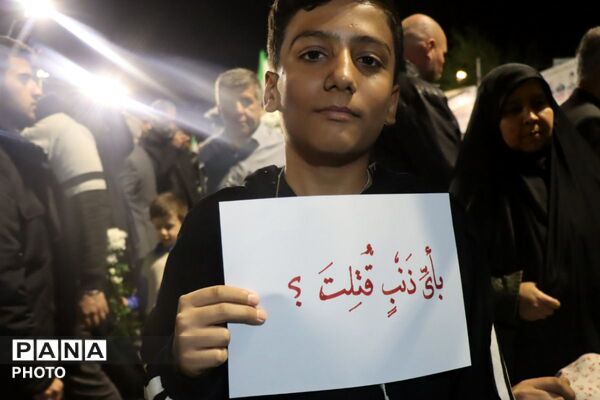 بأىِّ ذَنبٍ قُتِلتَ ؟
PANA
PHOTO